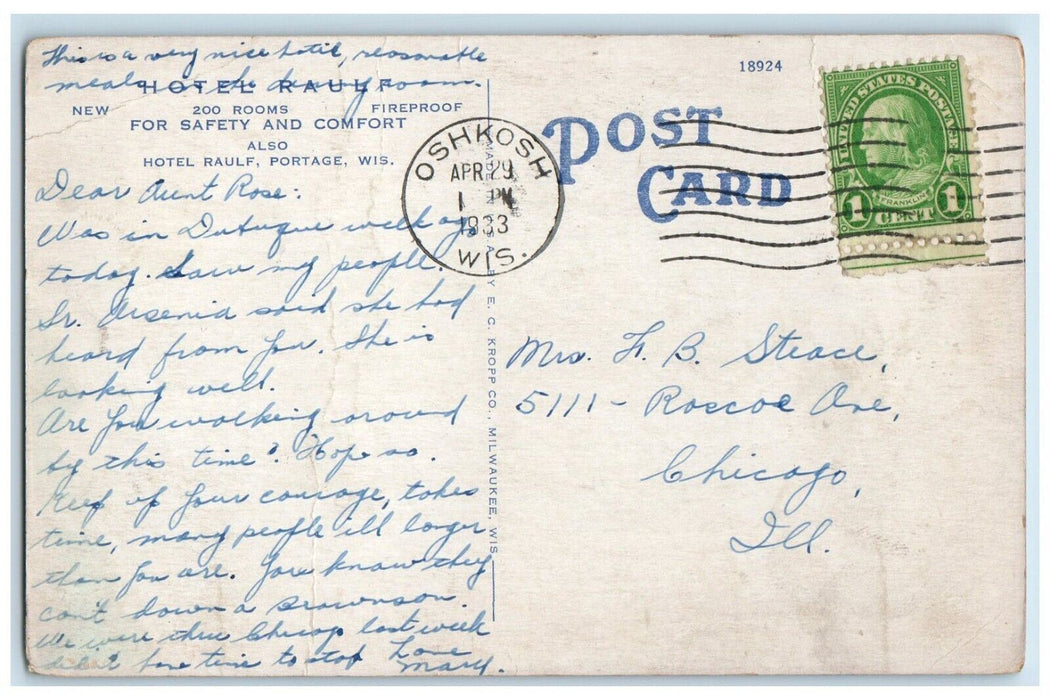 This is a very nice hotel, reasonable
meals in the dining room.
HOTEL RAULF
NEW 200 ROOMS FIREPROOF
FOR SAFETY AND COMFORT
ALSO
HOTEL RAULF, PORTAGE, WIS.
Dear Aunt Rose:
Was in Dubuque week ago
today. Saw my people.
Sr. Arsenia said she had
heard from you. She is
looking well.
Are you walking around
by this time? Hope so.
Keep up your courage, takes
time, many people ill longer
than you are. You know they
can't down a Brownson.
We were thru Chicago last week
didn't have time to stop
Love
Mary.
MADE IN U.S.A. BY E. C. KROPP CO., MILWAUKEE, WIS.
OSHKOSH
APR 29
1 PM
1933
WIS.
18924
POST
CARD
UNITED STATES POSTAGE
FRANKLIN
1 CENT 1
Mrs. F. B. Steace,
5111 - Roscoe Ave,
Chicago,
Ill.